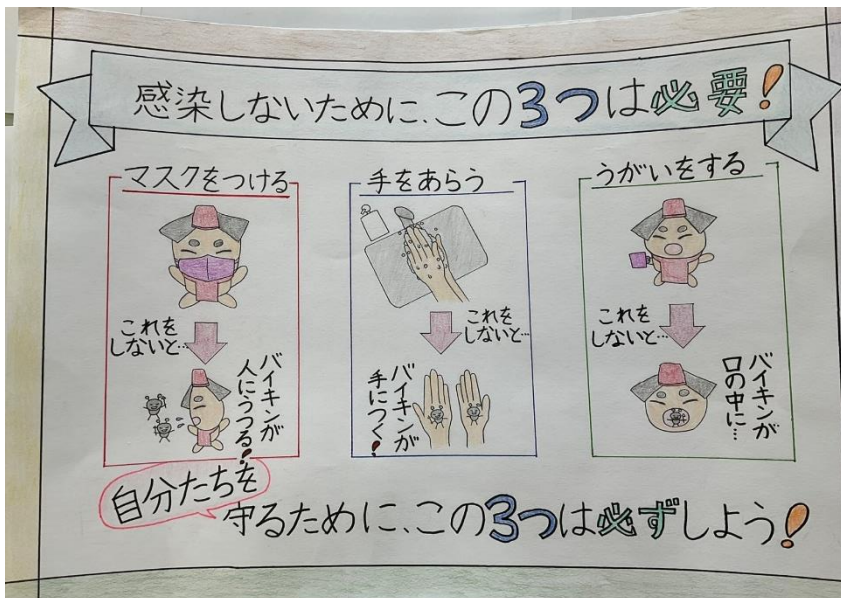 感染しないために、この3つは必要!
マスクをつける
これを
しないと…
バイキンが
人にうつる!
手をあらう
これを
しないと…
バイキンが
手につく!
うがいをする
これを
しないと…
バイキンが
口の中に…
自分たちを
守るために、この3つは必ずしよう!